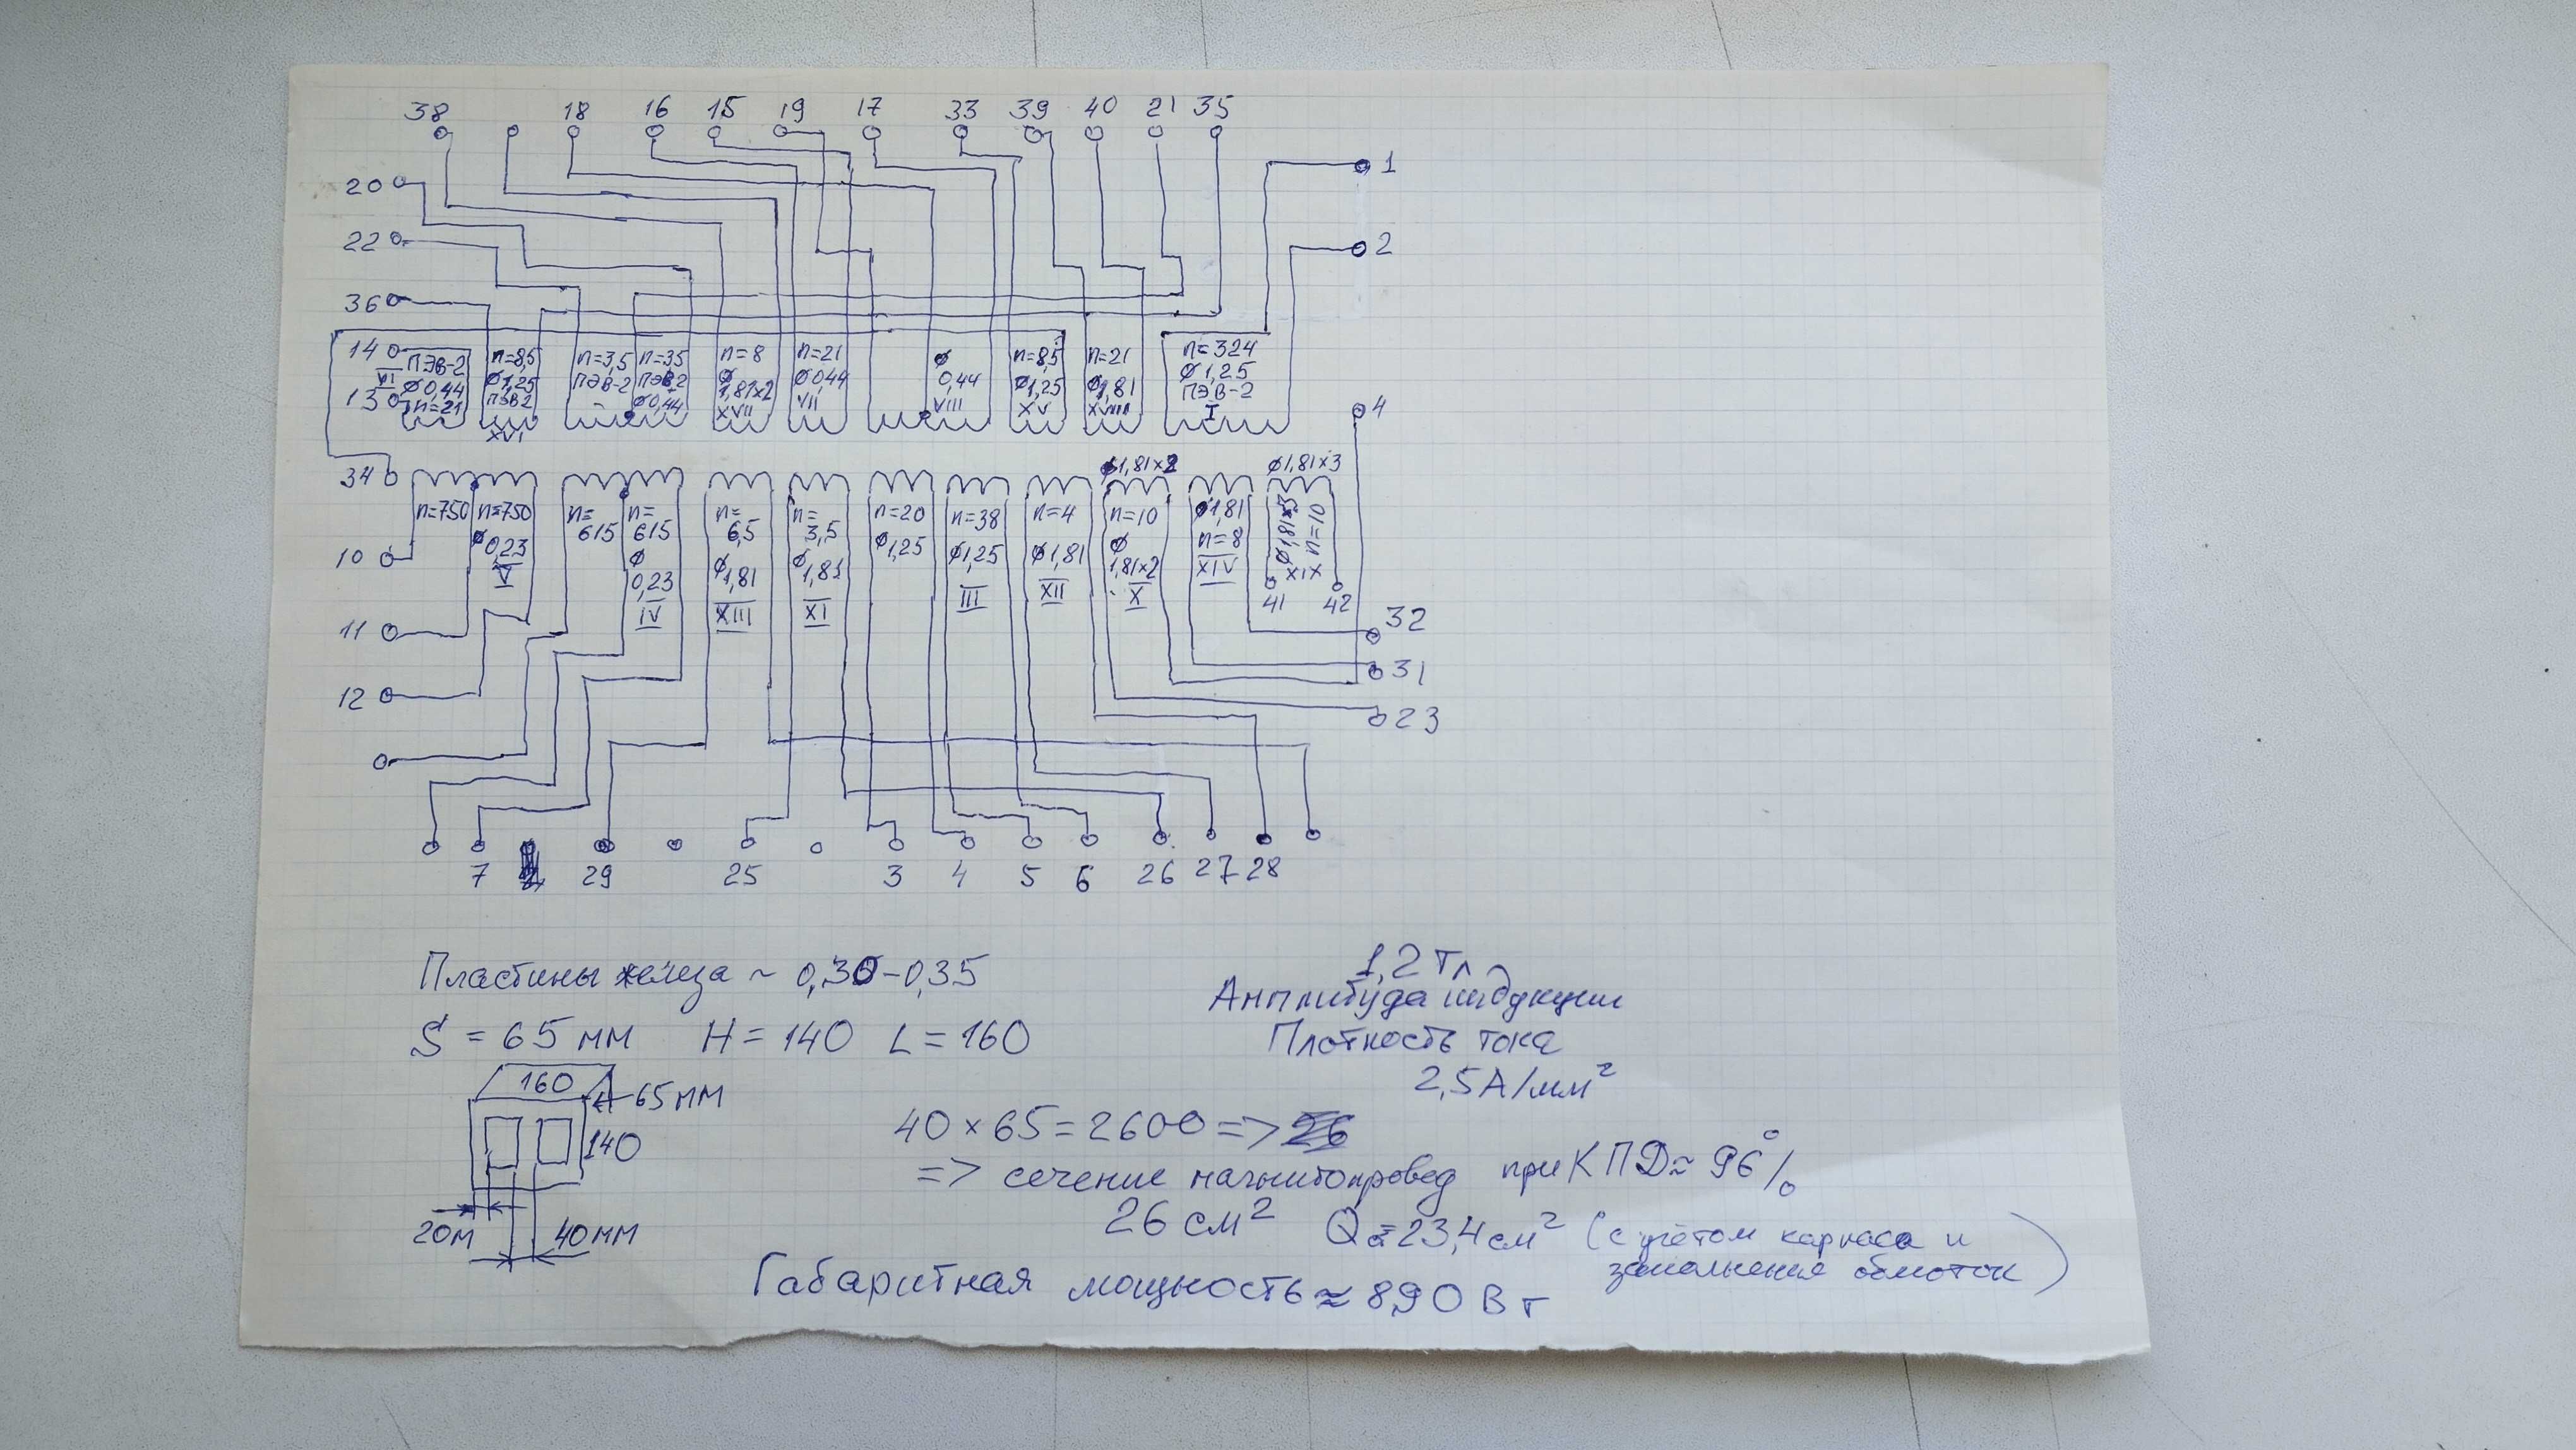 38 18 16 15 19 17 33 39 40 21 35
1
20
22
2
36
14
VI
13
ПЭВ-2
Ø0,44
n=21
n=8,5
Ø1,25
ПЭВ2
XVI
n=3,5
ПЭВ-2
n=35
ПЭВ2
Ø0,44
n=8
Ø
1,81×2
XVII
n=21
Ø0,44
VII
Ø
0,44
VIII
n=8,5
Ø1,25
XV
n=21
Ø1,81
XVIII
n=324
Ø1,25
ПЭВ-2
I
4
34
n=750
n=750
Ø0,23
V
n=
615
n=
615
Ø
0,23
IV
n=
6,5
Ø1,81
XIII
n=
3,5
Ø1,81
XI
n=20
Ø1,25
n=38
Ø1,25
III
n=4
Ø1,81
XII
Ø1,81×2
n=10
Ø
1,81×2
X
Ø1,81
n=8
XIV
Ø1,81×3
Ø1,81×3
n=10
XIX
41 42
10
11
12
32
31
23
7 29 25 3 4 5 6 26 27 28
Пластины железа ~ 0,30-0,35
S = 65 мм H = 140 L = 160
160
65 мм
140
20м 40мм
1,2 Тл
Амплитуда индукции
Плотность тока
2,5А/мм²
40 × 65 = 2600 =>
=> сечение магнитопровод при КПД ≈ 96%
26 см² Q ≈ 23,4 см² (с учётом каркаса и
заполнения обмоток)
Габаритная мощность ≈ 890 Вт